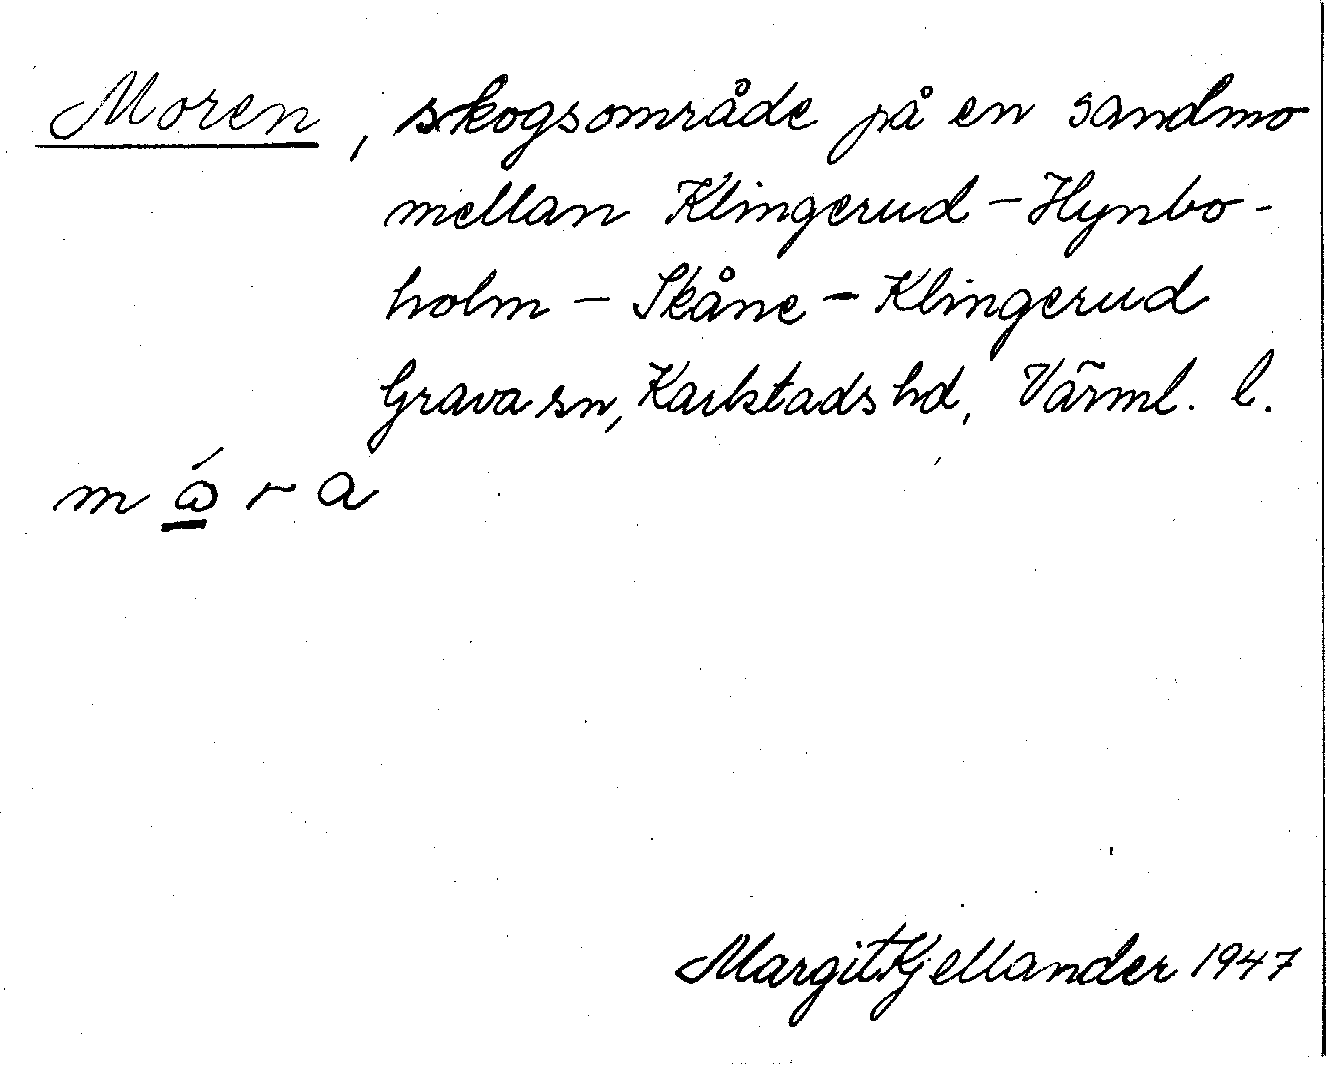 Moren, skogsområde på en sandmo
mellan Klingerud – Hynbo-
holm – Skåne – Klingerud
Grava sn, Karlstads hd, Värml. l.
m ó̲ r a
Margit Kjellander 1947